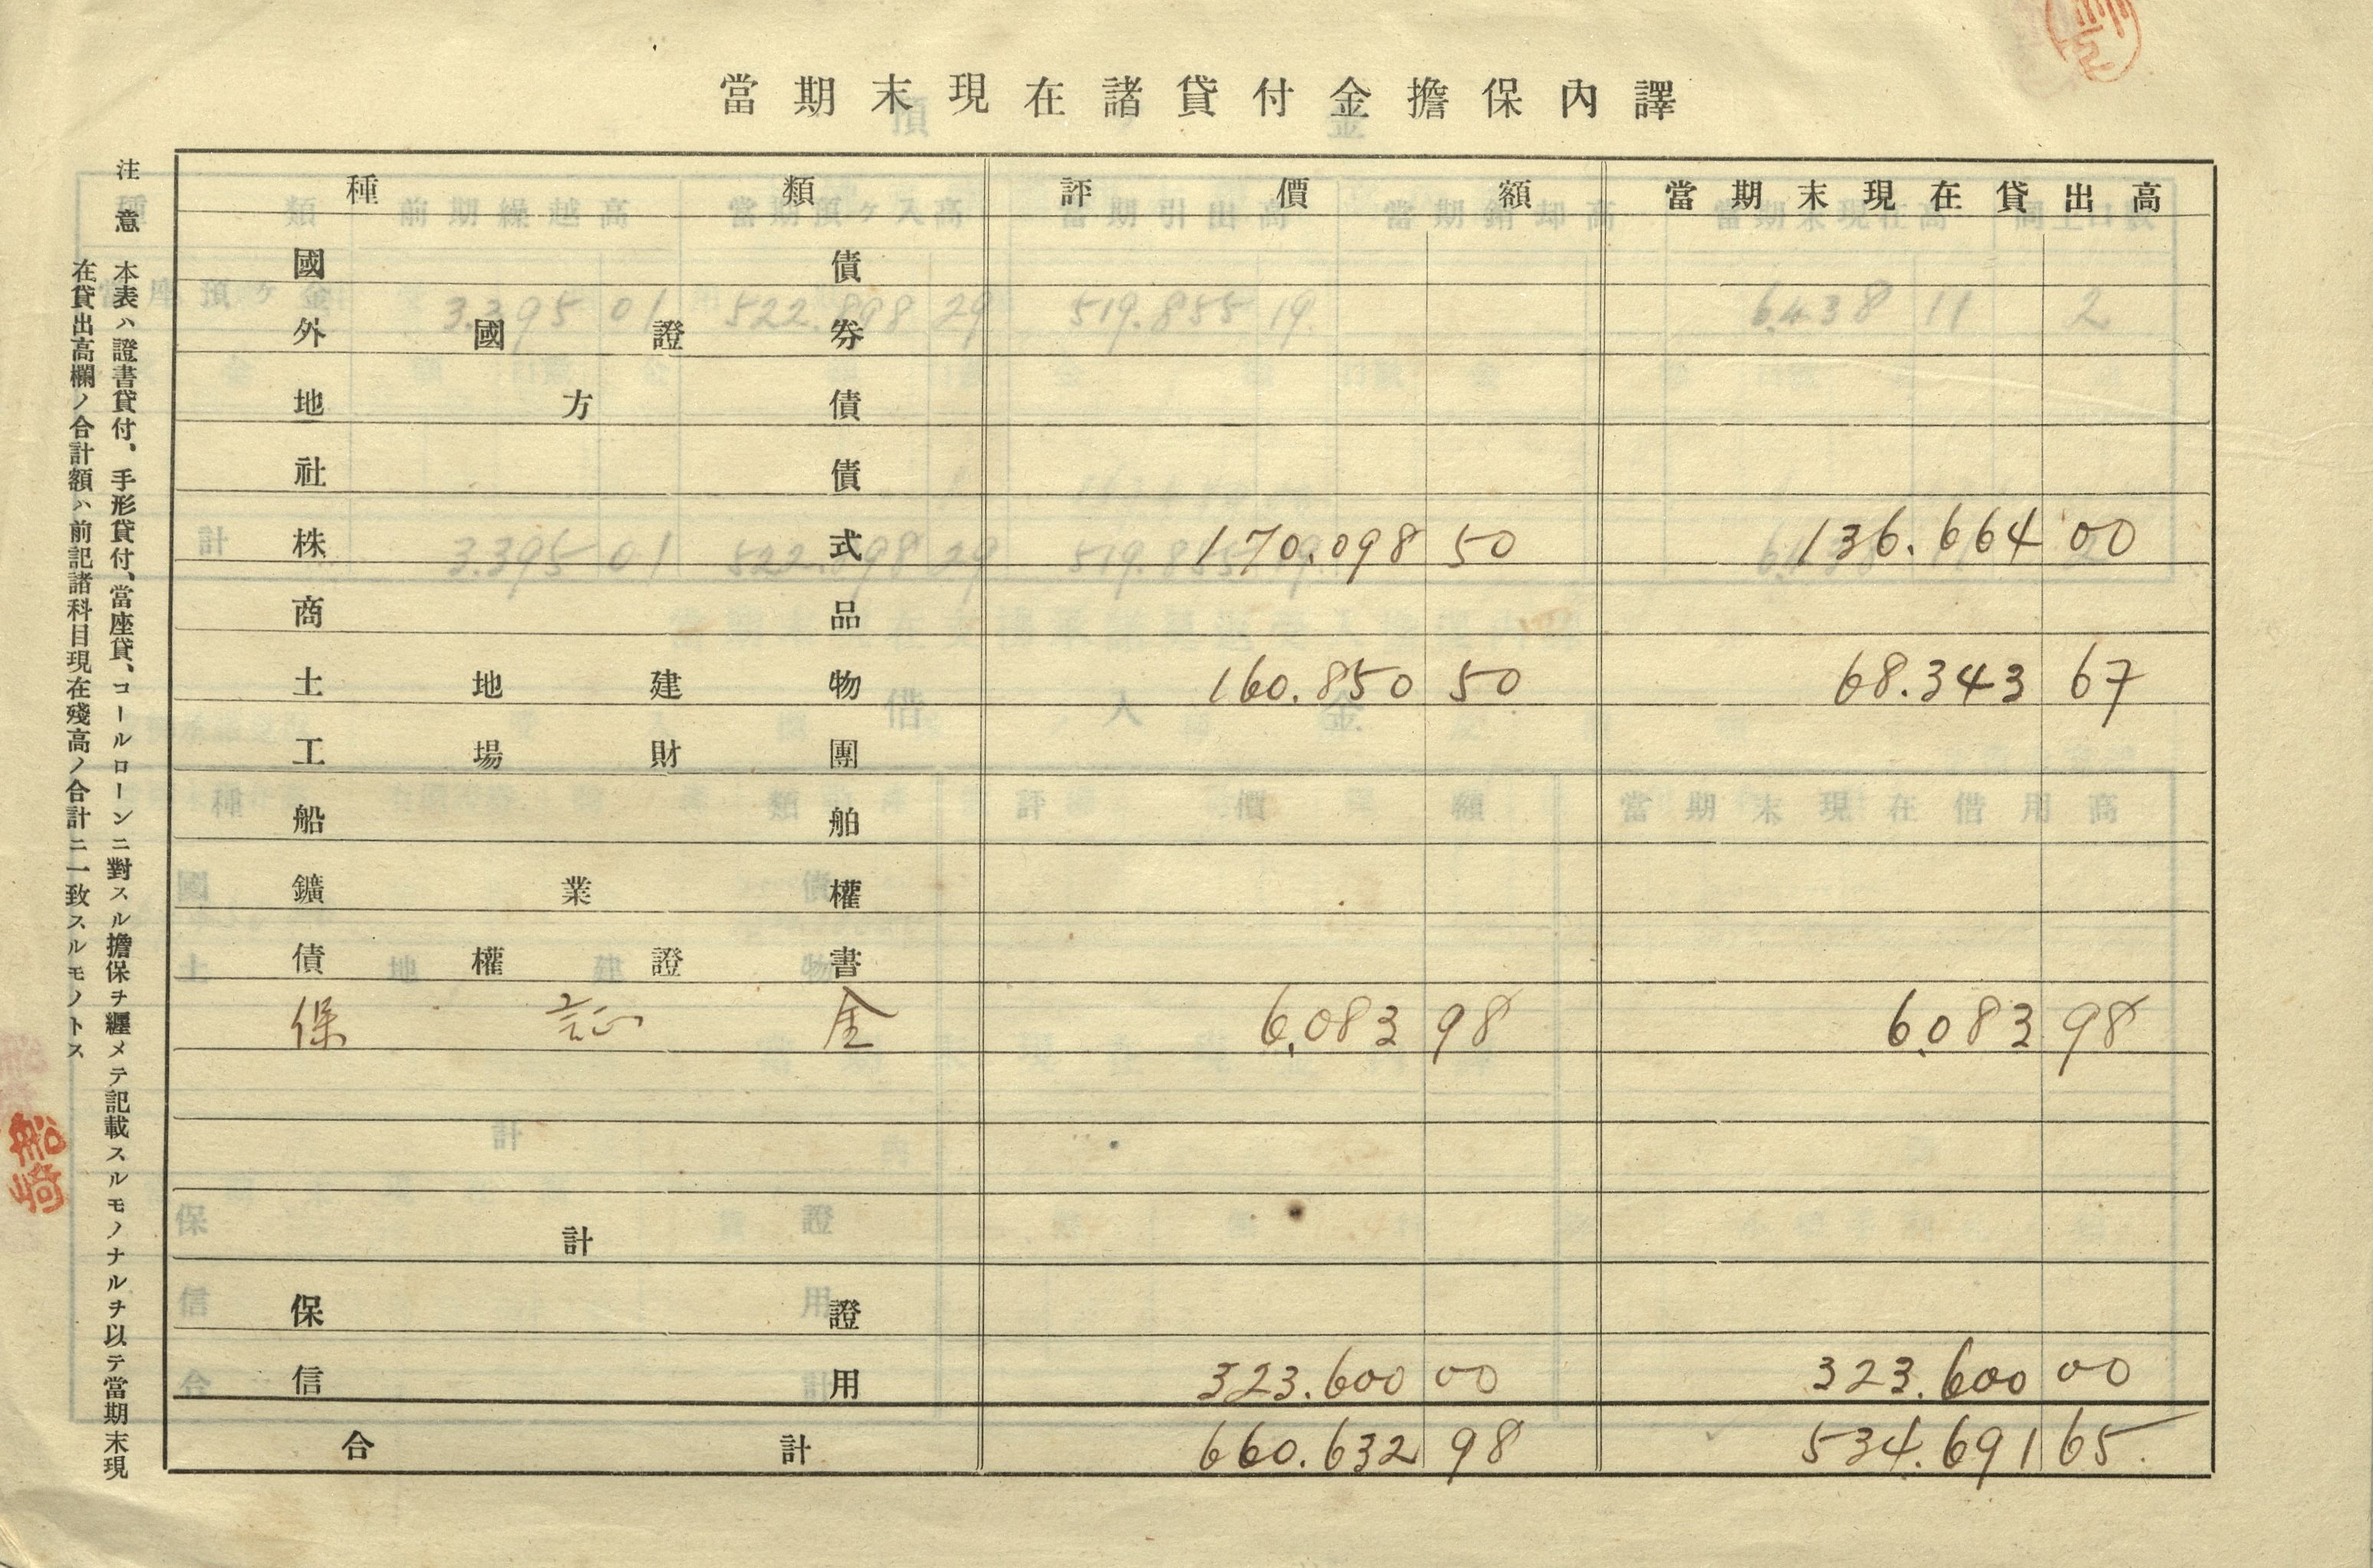 當期末現在諸貸付金擔保內譯
種類 評價額 當期末現在貸出高
國債
外國證券
地方債
社債
株式 170.098 50 136.664 00
商品
土地建物 160.850 50 68.343 67
工場財團
船舶
鑛業權
債權證書
保証金 6,083 98 6,083 98
計
保證
信用 323.600 00 323.600 00
合計 660.632 98 534.691 65
注意
本表ハ證書貸付、手形貸付、當座貸、コールローンニ對スル擔保ヲ纒メテ記載スルモノナルヲ以テ當期末現
在貸出高欄ノ合計額ハ前記諸科目現在殘高ノ合計ニ一致スルモノトス
船崎